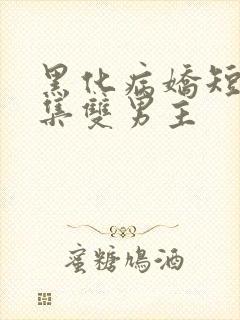 黑化病嬌短
集雙男主
蜜糖鳩酒